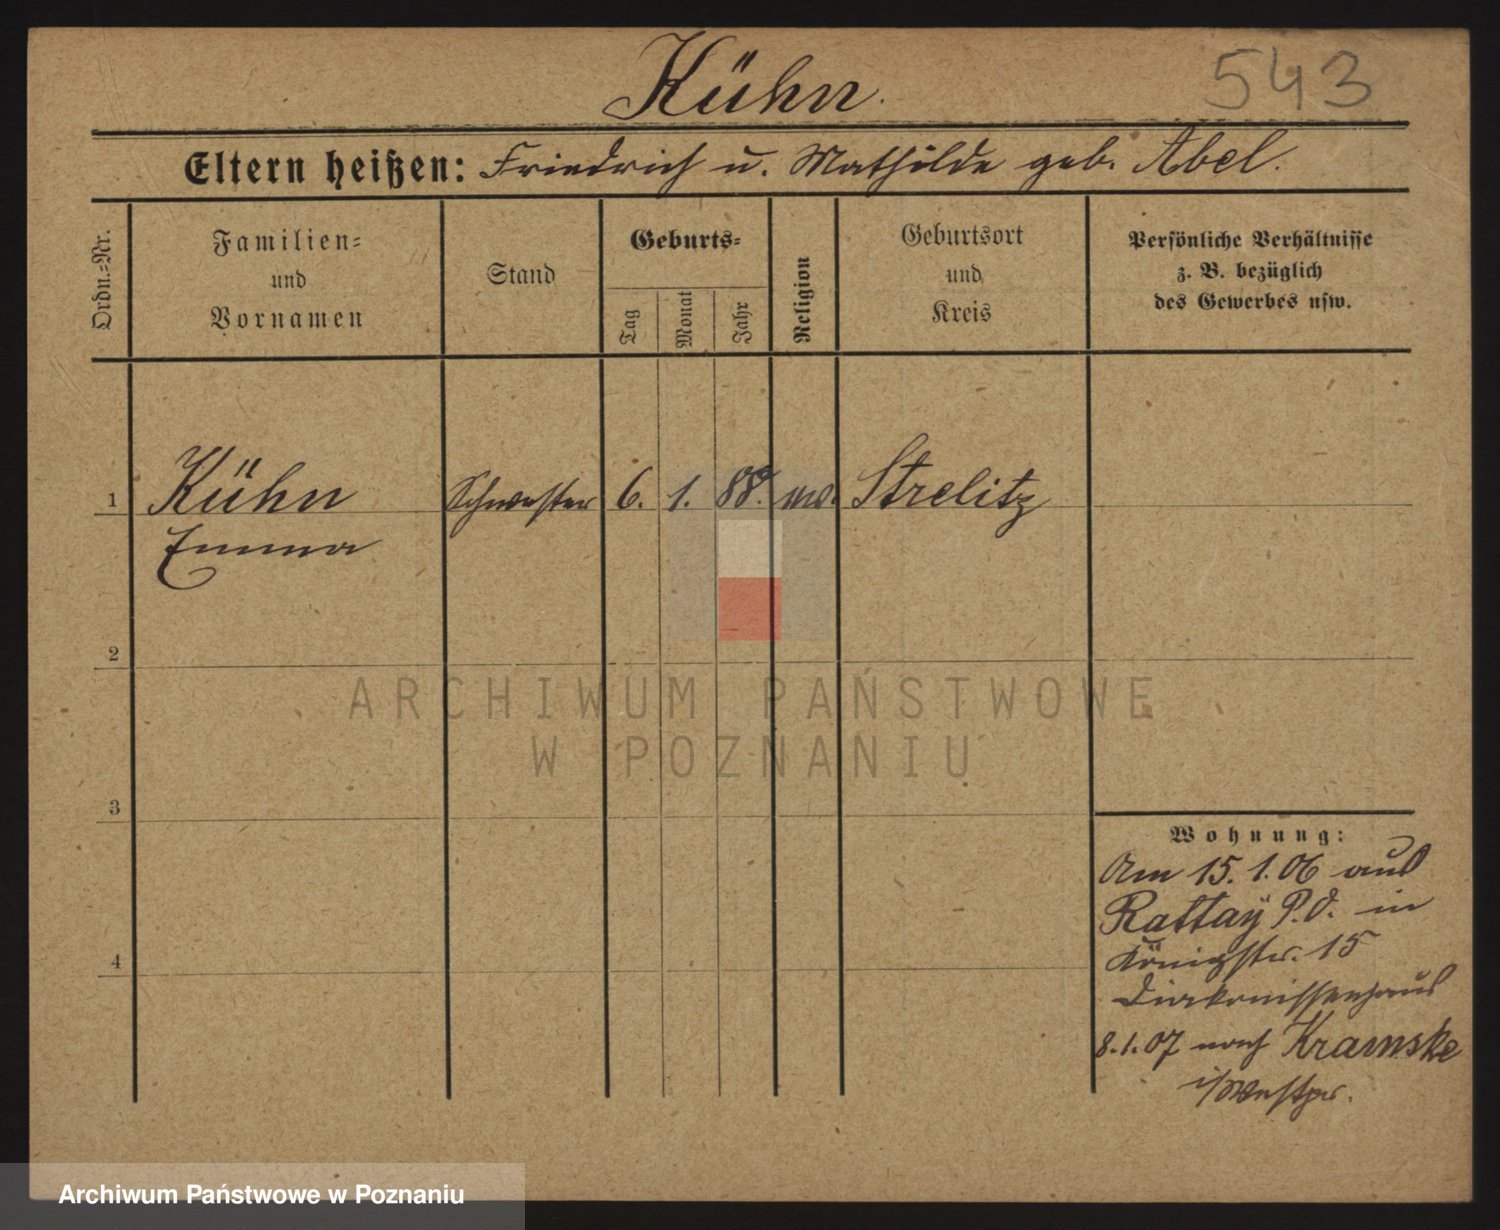 Kühn.
543
Eltern heißen: Friedrich u. Mathilde geb. Abel.
Ordn.-Nr.
Familien-
und
Vornamen
Stand
Geburts-
Tag
Monat
Jahr
Religion
Geburtsort
und
Kreis
Persönliche Verhältnisse
z. B. bezüglich
des Gewerbes usw.
1 Kühn Schwester 6. 1. 88. ew. Strelitz
Emma
2
ARCHIWUM PAŃSTWOWE
W POZNANIU
3
4
Wohnung:
Am 15.1.06 aus
Rattay P.O. in
Königstr. 15
Diakonissenhaus
8.1.07 nach Kramske
i/Westpr.
Archiwum Państwowe w Poznaniu